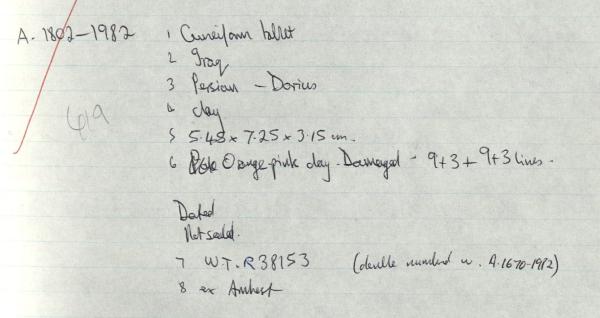 A. 1802-1982 1 Cuneiform tablet
2 Iraq
3 Persian - Darius
4 clay
619
5 5.45 x 7.25 x 3.15 cm.
6 Orange pink clay. Damaged - 9+3+9+3 lines.
Dated
Not sealed.
7 W.T. R38153 (double numbered w. A.1670-1982)
8 ex Amherst